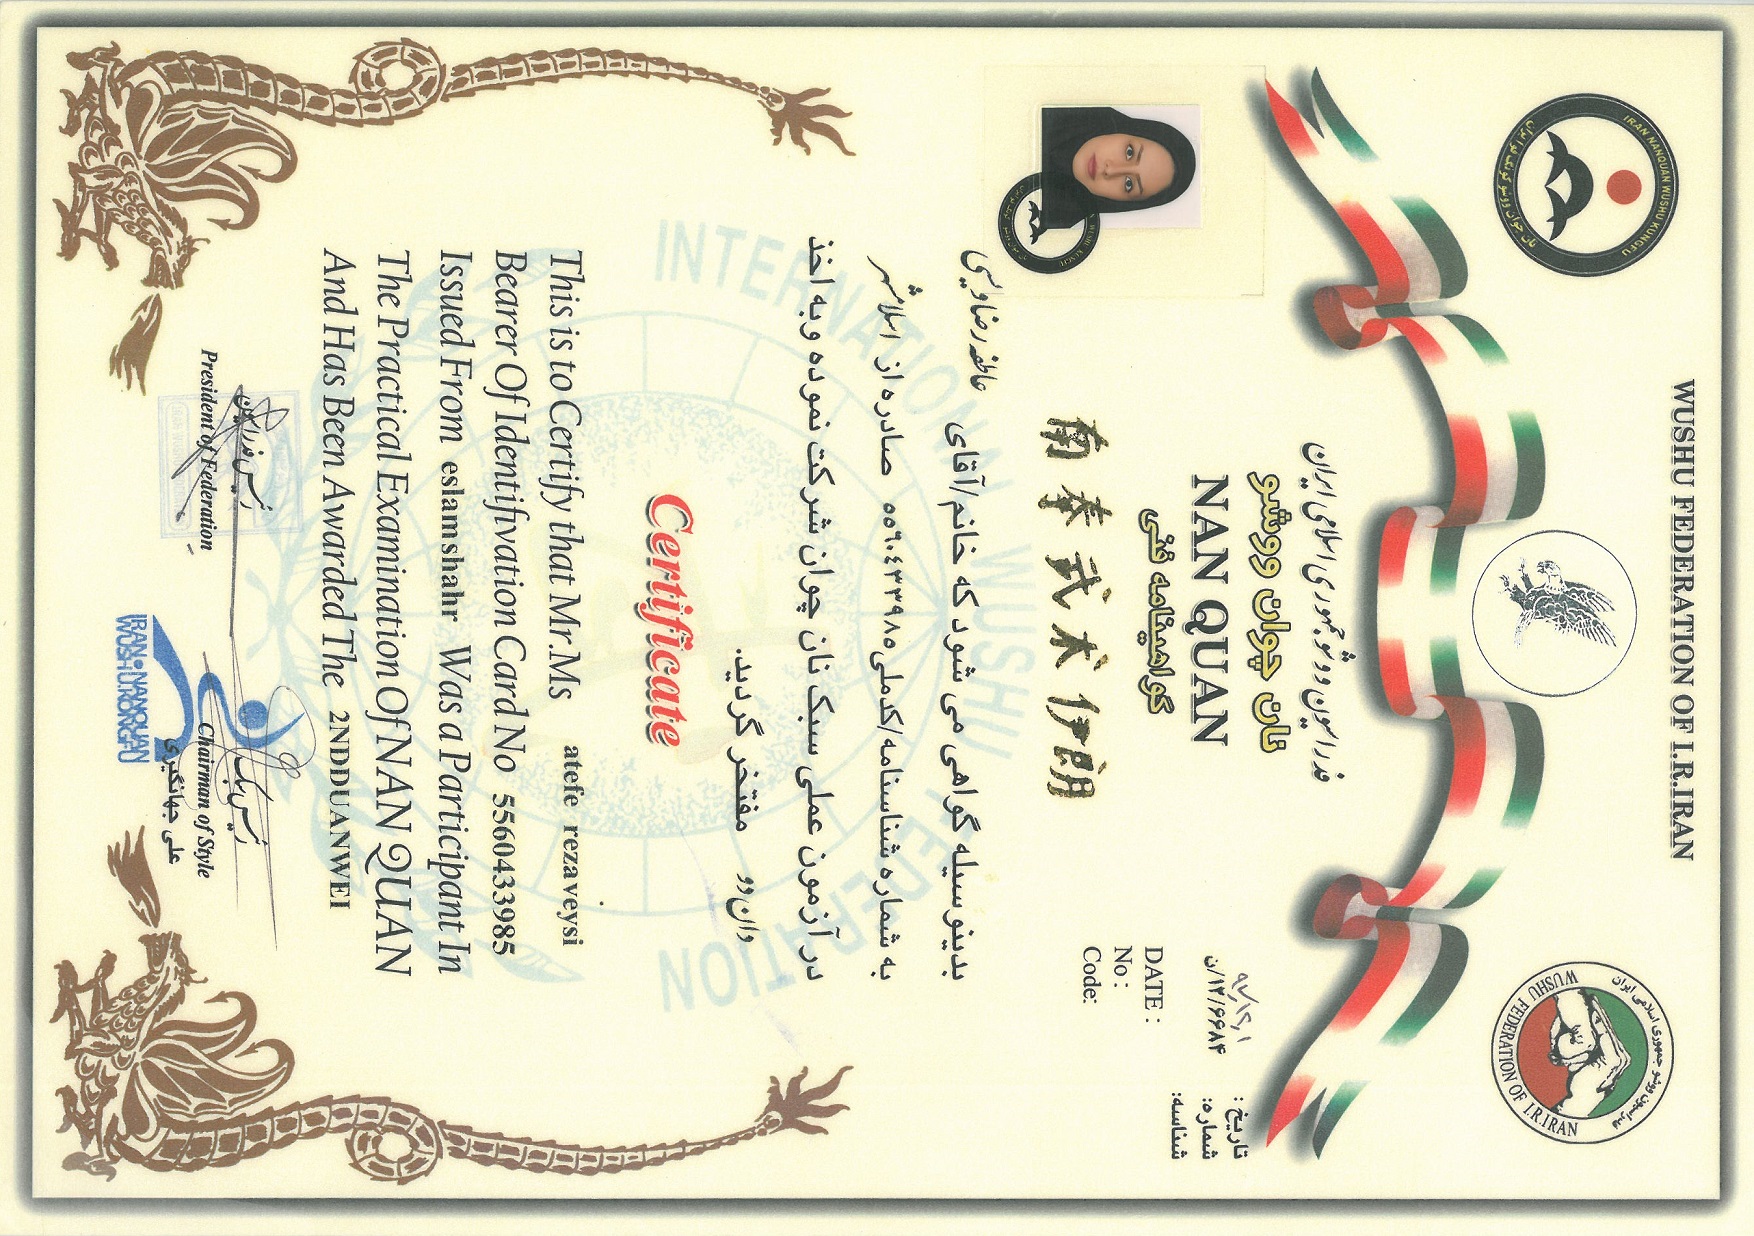 WUSHU FEDERATION OF I.R.IRAN
IRAN NANQUAN WUSHU KUNGFU
نان چوان ووشو کونگ فو ایران
فدراسیون ووشو جمهوری اسلامی ایران
WUSHU FEDERATION OF I.R.IRAN
فدراسیون ووشو جمهوری اسلامی ایران
نان چوان ووشو
NAN QUAN
گواهینامه فنی
تاریخ :
شماره: ۱۲/۶۶۸۴/ن
شناسه:
DATE :
No :
Code:
南拳武术伊朗
بدینوسیله گواهی می شود که خانم/آقای عاطفه رضاویسی
به شماره شناسنامه/کدملی ۵۵۶۰۴۳۳۹۸۵ صادره از اسلامشهر
در آزمون عملی سبک نان چوان شرکت نموده و به اخذ
دان دو مفتخر گردید.
INTERNATIONAL WUSHU FEDERATION
Certificate
This is to Certify that Mr.Ms atefe rezaveysi
Bearer Of Identifivation Card No 5560433985
Issued From eslamshahr Was a Participant In
The Practical Examination Of NAN QUAN
And Has Been Awarded The 2NDDUANWEI
رئیس فدراسیون
President of Federation
رئیس سبک
Chairman of Style
علی جهانگیری
IRAN•NANQUAN
WUSHU.KONGFU